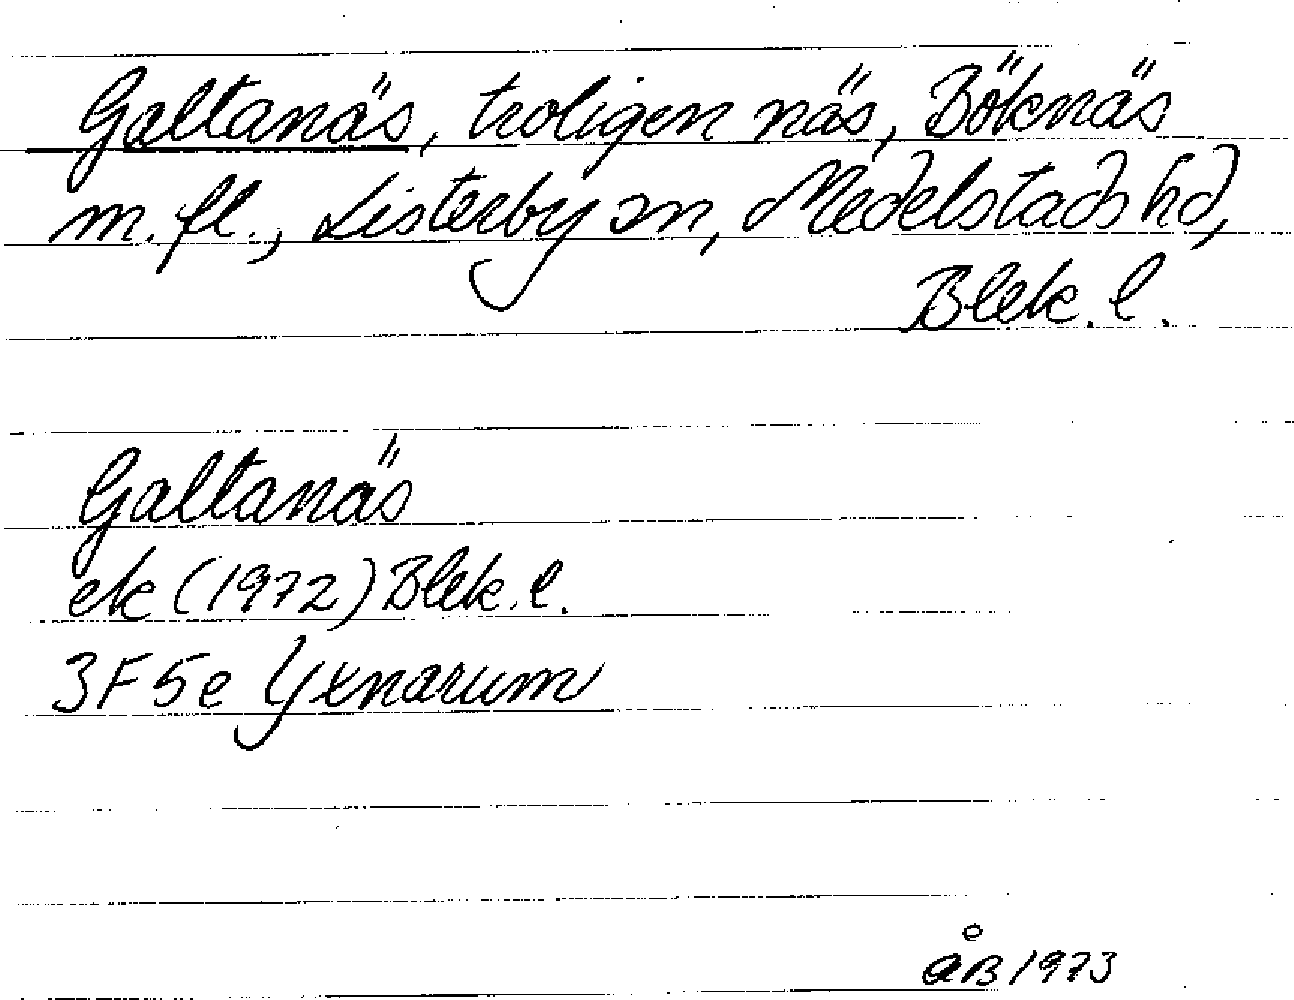 Galtanäs, troligen näs, Böknäs
m.fl., Listerby sn, Medelstads hd,
Blek.l.
Galtanäs
ek (1972) Blek.l.
3F5e Yxnarum
åB 1973